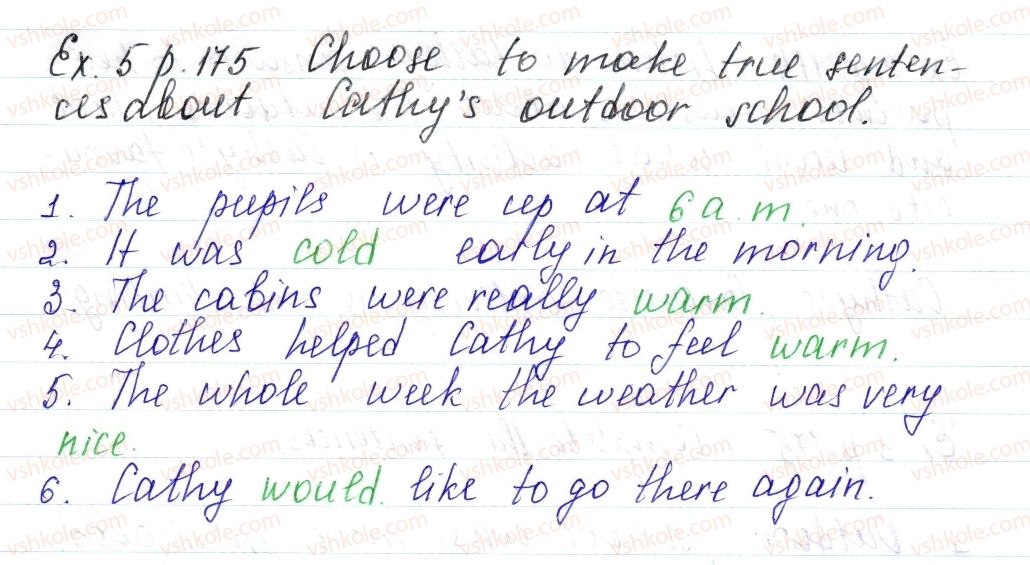 Ex. 5 p. 175 Choose to make true senten-
ces about Cathy's outdoor school.
1. The pupils were up at 6 a.m.
2. It was cold early in the morning.
3. The cabins were really warm.
4. Clothes helped Cathy to feel warm.
5. The whole week the weather was very
nice.
6. Cathy would like to go there again.